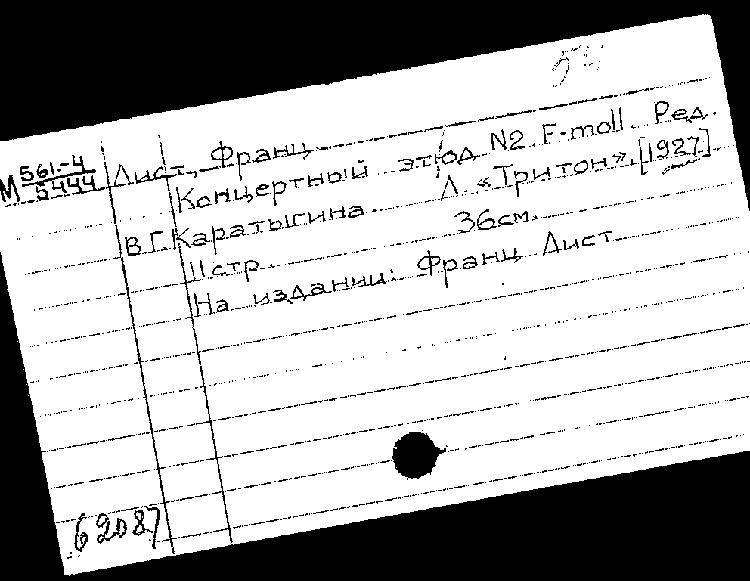 54
М 561-4 Лист, Франц.
5444
Концертный этюд N2 F-moll. Ред.
В.Г. Каратыгина. Л. «Тритон», [1927]
11 стр. 36см.
На издании: Франц Лист
62087